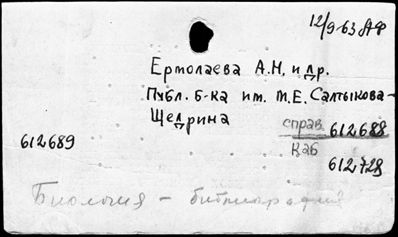 12/9-63 АФ
Ермолаева А.Н. и др.
Публ. б-ка им. М.Е. Салтыкова-
Щедрина
справ 612688
612689
Каб
612728
Биология - библиография